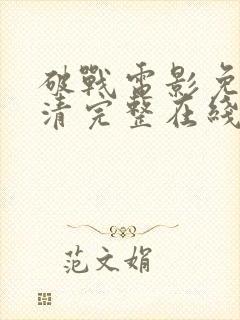 破戰電影免
清完整在綫
范文娟